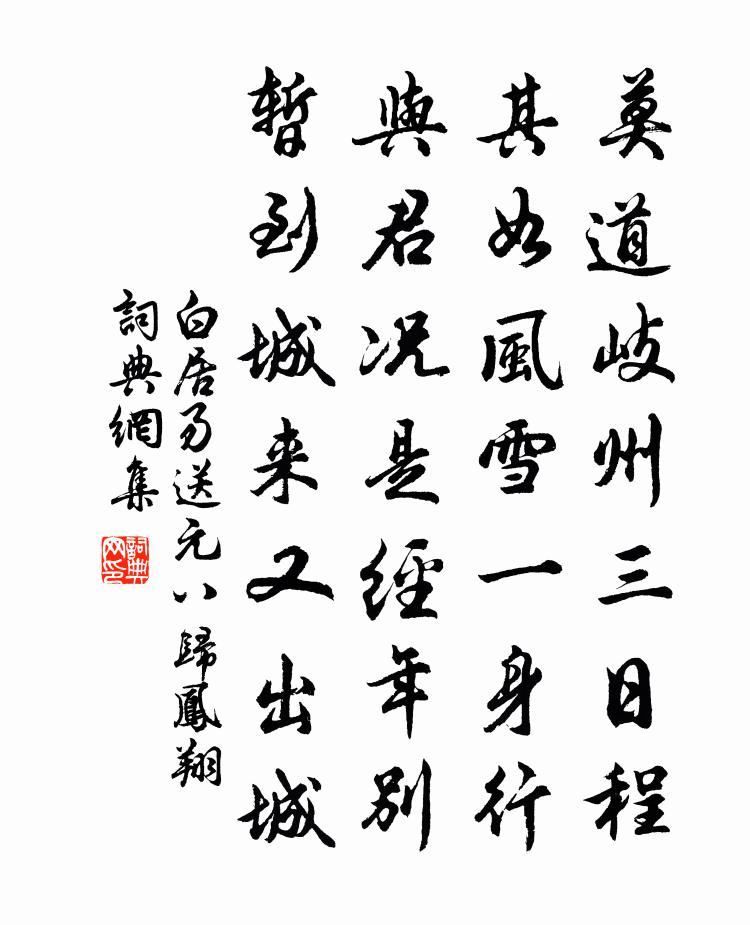 莫道岐州三日程
其如風雪一身行
與君況是經年別
暫到城来又出城
白居易送元八歸鳳翔
詞典網集
詞典网印